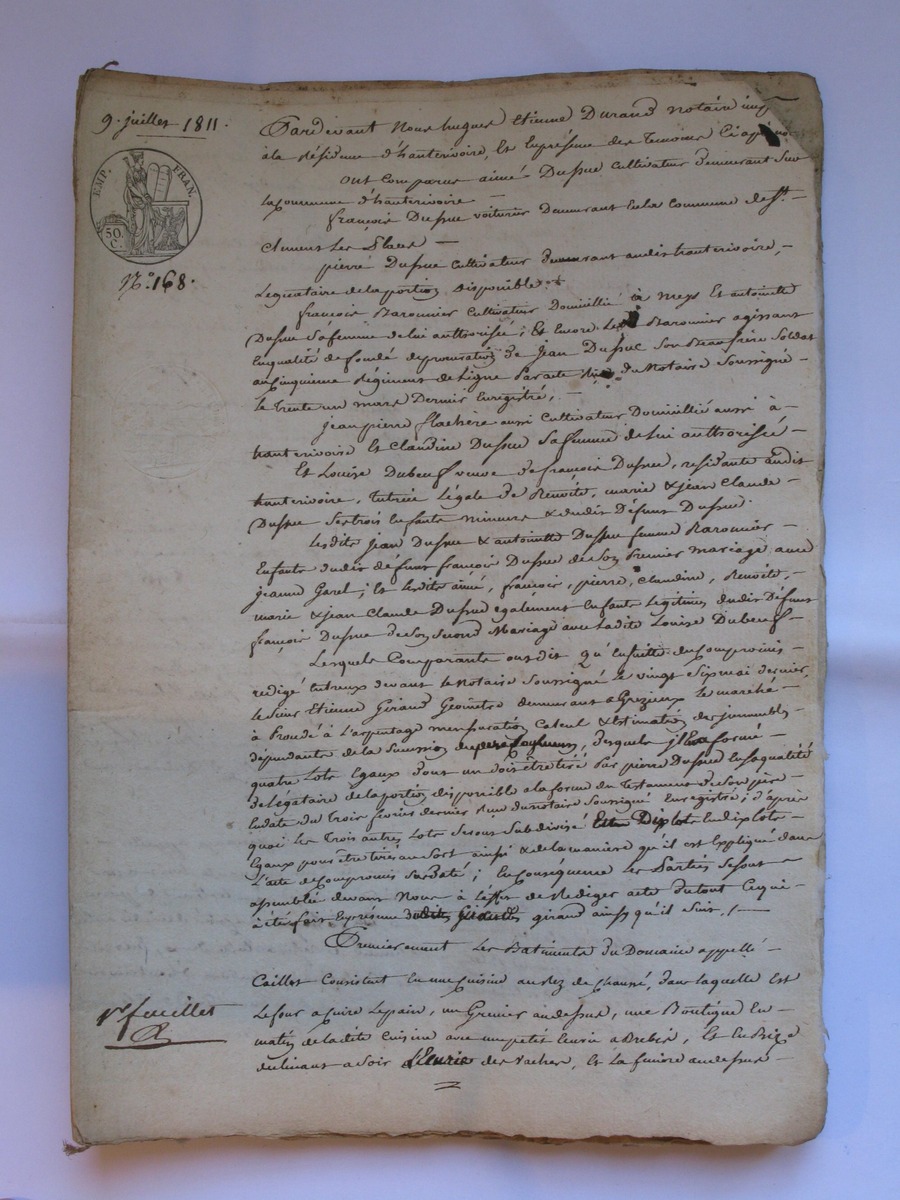 9. juillet 1811.
EMP. FRAN.
50. C.
N.o 168.
Pardevant Nous hugues Etienne Durand Notaire imp.
à la Résidence d'hauterivoire, Et En présence des Temoins Ci après
ont Comparus aimé Dussuc Cultivateur demeurant Sur
la Commune d'hauterivoire —
françois Dussuc voiturier Demeurant En la Commune de St.
Clement Les Places —
pierre Dussuc Cultivateur demeurant audit hauterivoire, —
Legataire de la portion disponible
françois Raronnier Cultivateur Domicillié à meys Et antoinette
Dussuc Sa femme de lui authorisée; Et Encore Le Raronnier agissant
En qualité de fondé de procuration de Jean Dussuc Son Beaufrère Soldat
au Cinquieme Régiment de Ligne Par acte Reçu du Notaire Soussigné —
le trente un mars Dernier Enregistré, —
Jean pierre flachère aussi Cultivateur Domicillié aussi à —
hauterivoire Et Claudine Dussuc Sa femme de lui authorisée —
Et Louise Dubeuf veuve de françois Dussuc, résidante audit
hauterivoire, tutrice Légale de Benoite, marie & jean Claude —
Dussuc Ses trois Enfants mineurs & dudit Défunt Dussuc.
Lesdits Jean Dussuc & antoinette Dussuc femme Raronnier —
Enfants dudit défunt françois Dussuc de Son Premier Mariage avec
jeanne Garel; Et Lesdits aimé, françois, pierre, Claudine, Benoite, —
marie & jean Claude Dussuc également Enfants Legitimes dudit Défunt
françois Dussuc de Son Second Mariage avec Ladite Louise Dubeuf —
Lesquels Comparants ont dit qu'Ensuite du Compromis —
redigé Entreux devant le Notaire Soussigné le vingt Six mai dernier,
le Sieur Etienne Girand Géomètre demeurant a Grezieux Le marché —
à Procédé à L'arpentage mensuration Calcul & Estimation des immeubles —
dépendants de la Succession desquels il En a formé —
quatre Lots Egaux dont un doit être tiré Par pierre Dussuc En Sa qualité
de Légataire de la portion disponible a la forme du Testament de Son père
En date du Trois fevrier dernier Reçu du notaire Soussigné Enregistré; d'après
quoi Les Trois autres Lots Seront Subdivisé En dix Lots —
Egaux pour être tirés au Sort ainsi & de la manière qu'il est Expliqué dans
L'acte de Compromis Susdaté; En Conséquence les Parties Se Sont —
assemblée devant Nous à L'effet de Rediger acte du tout Ce qui —
à été fait En présence dudit girand ainsi qu'il Suit, /. —
Premierement Les Batiments du Domaine appellé —
Caillot Consistent En une Cuisine au Rez de Chaussé, dans laquelle est
Le four a Cuire Le pain, un Grenier au dessus, une Boutique En —
matin de ladite Cuisine avec une petite Ecurie a Brebis, Et En Bize
du Levant a Soir L'Ecurie des vaches, Et La feniere au dessus —
1er feuillet